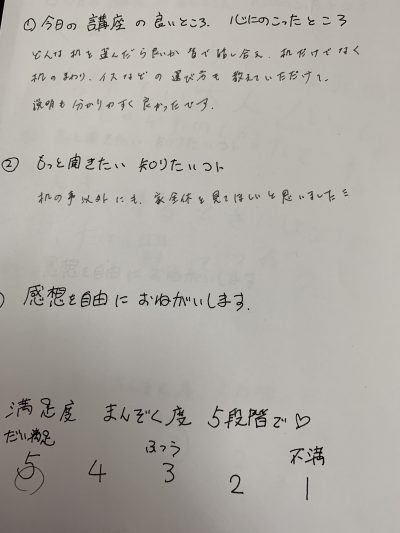 ①今日の講座の良いところ、心にのこったところ
どんな机を選んだら良いか皆で話し合え、机だけでなく
机のまわり、イスなどの選び方も教えていただけて、
説明も分かりやすく良かったです。
② もっと聞きたい 知りたいコト
机の事以外にも、家全体を見てほしいと思いました
感想を自由に おねがいします。
満足度 まんぞく度 5段階で♡
だい満足 ふつう 不満
5 4 3 2 1